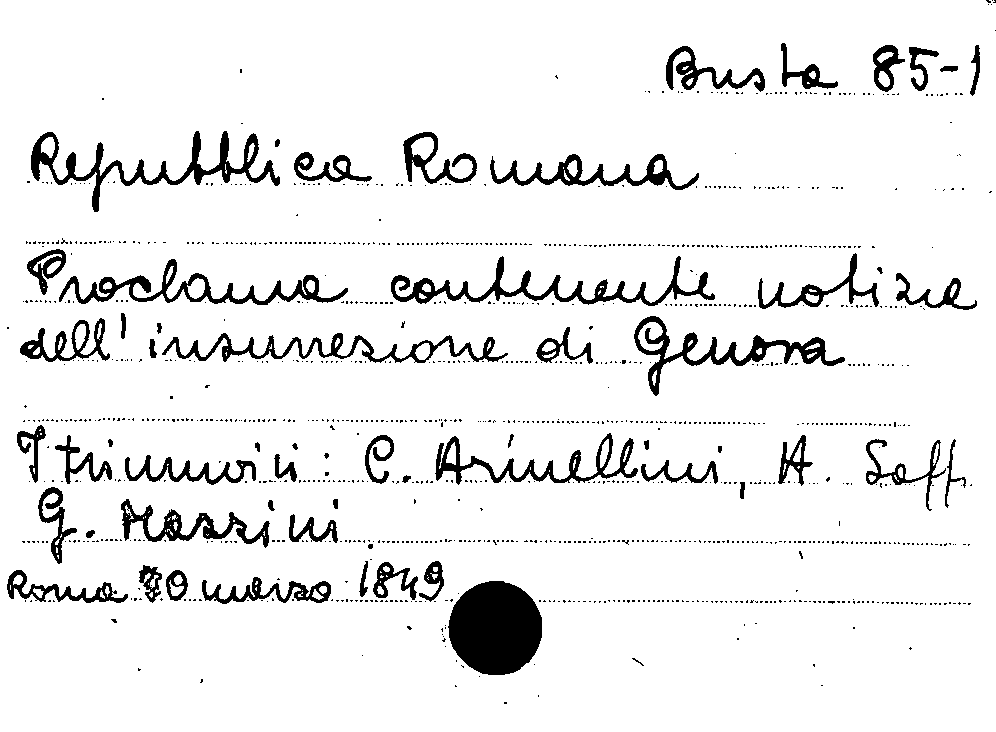 Busta 85-1
Repubblica Romana
Proclama contenente notizia
dell'insurrezione di Genova
I triumviri: C. Armellini, A. Saffi
G. Mazzini
Roma marzo 1849